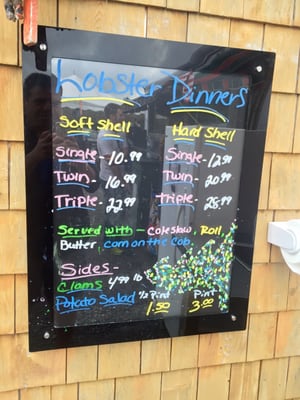 Lobster Dinners
Soft Shell
Single - 10.99
Twin - 16.99
Triple - 22.99
Hard Shell
Single - 12.99
Twin - 20.99
Triple - 28.99
Served with - Coleslaw, Roll,
Butter, corn on the cob.
Sides -
Clams 4.99 lb
Potato Salad ½ Pint Pint
1.50 3.00